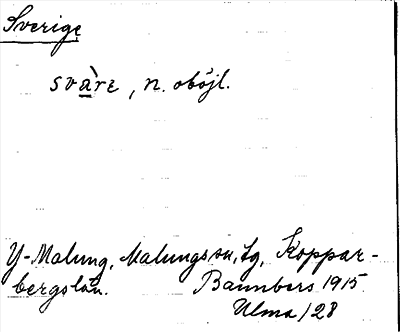 Sverige
svàre, n. oböjl.
Y-Malung, Malungs sn, Koppar-
bergs län. Bannbers 1915
Ulma/28